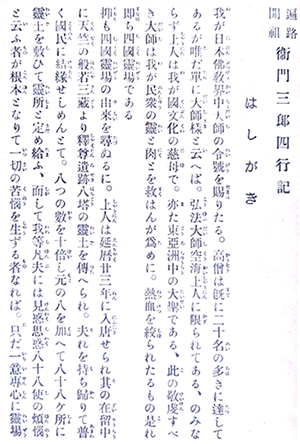 遍路
開祖 衛門三郎四行記
はしがき
我が日本佛敎界中大師の令號を賜りたる。高僧は旣に二十名の多きに達して
あるが唯だ單に大師樣と云へば。弘法大師空海上人に限られてある、のみな
らず上人は我が國文化の慈母で。亦た東亞洲中の大聖である、此の敬虔すべ
き大師は我が民衆の靈と肉とを救はんが爲めに。熱血を絞られたるもの是れ
卽ち四國靈場である
抑も四國靈場の由來を尋ぬるに。上人は延曆廿三年に入唐せられ其の在留中
に天竺の般若三藏より釋尊遺跡八塔の靈土を傳へられ。夫れを持ち歸りて普
く國民に結緣せしめんとて。八つの數を十倍し元の八を加へて八十八ケ所に
靈土を敷ひて靈所と定め給ふ、而して我等凡夫には見惑思惑八十八使の煩惱
と云ふ者が根本となりて一切の苦惱を生ずる者なれば。只だ一意專心に靈場